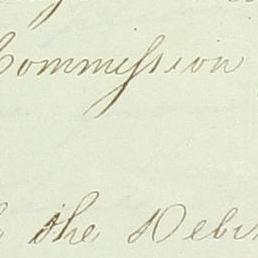 Commission
the Debi